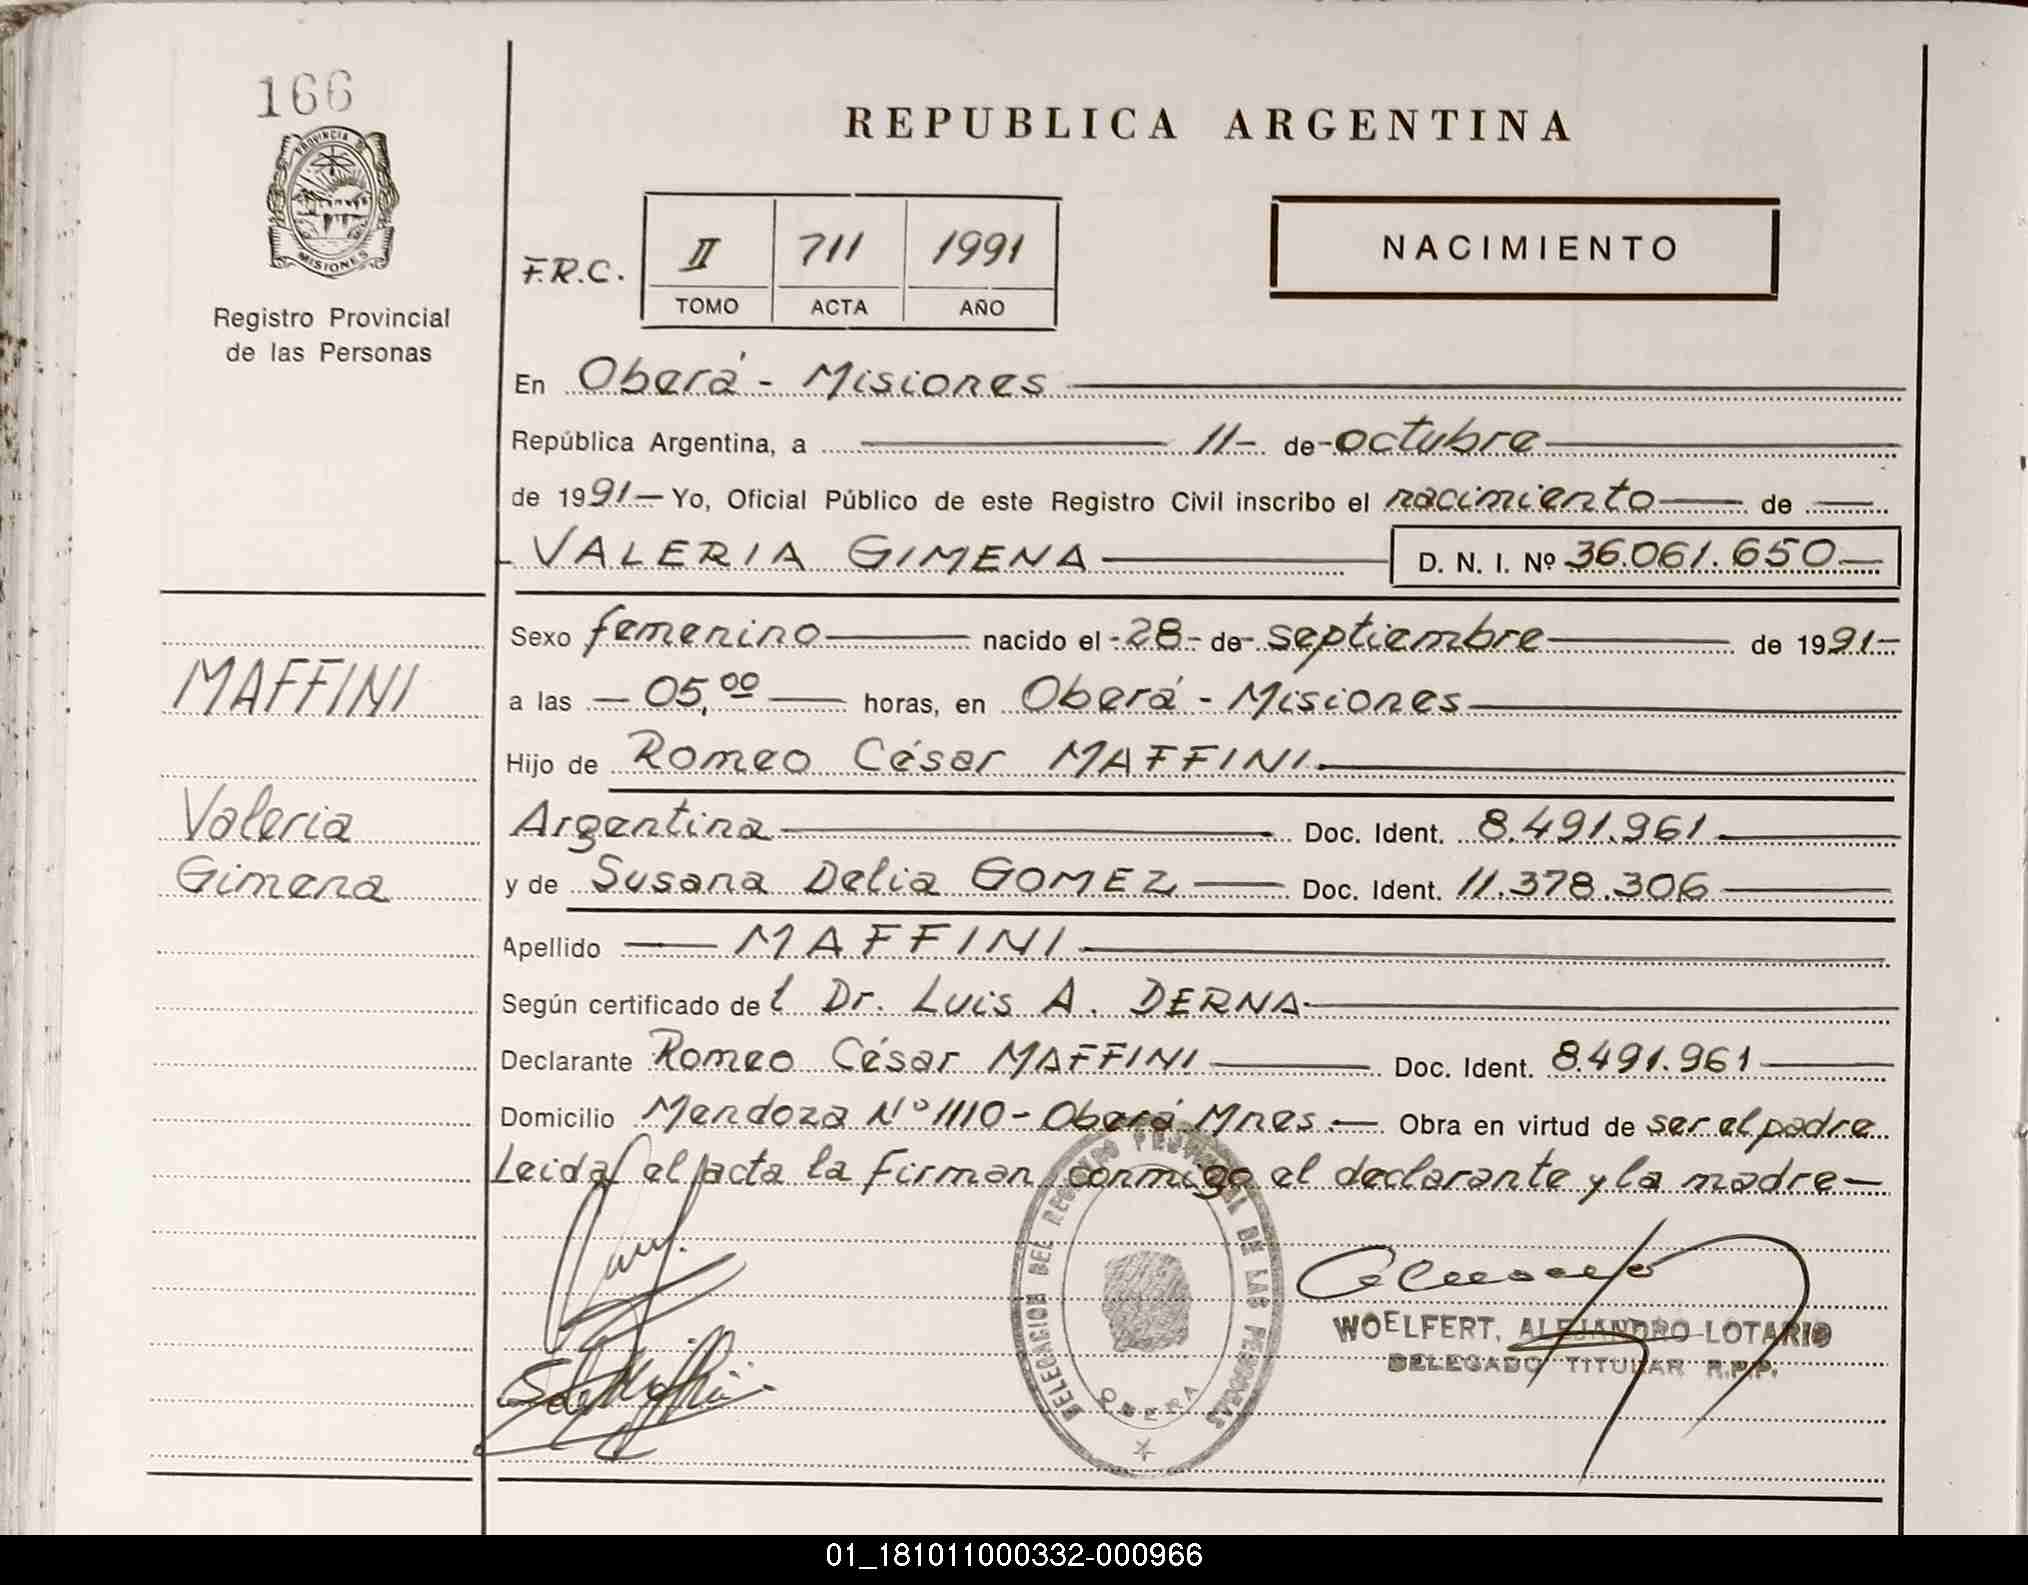 166
PROVINCIA DE
MISIONES
Registro Provincial
de las Personas
REPUBLICA ARGENTINA
F.R.C.
II 711 1991
TOMO ACTA AÑO
NACIMIENTO
En Oberá - Misiones
República Argentina, a 11- de octubre
de 1991- Yo, Oficial Público de este Registro Civil inscribo el nacimiento de
VALERIA GIMENA D. N. I. Nº 36.061.650
Sexo femenino nacido el -28- de- septiembre de 1991-
a las 05,00 horas, en Oberá - Misiones
MAFFINI
Hijo de Romeo César MAFFINI
Valeria
Argentina Doc. Ident. 8.491.961
Gimena
y de Susana Delia GOMEZ Doc. Ident. 11.378.306
Apellido MAFFINI
Según certificado del Dr. Luis A. DERNA
Declarante Romeo César MAFFINI Doc. Ident. 8.491.961
Domicilio Mendoza Nº 1110 - Oberá Mnes. Obra en virtud de ser el padre
Leida el acta la firman conmigo el declarante y la madre
DELEGACION DEL REGISTRO PROVINCIAL DE LAS PERSONAS
OBERA
WOELFERT, ALEJANDRO LOTARIO
DELEGADO TITULAR R.P.P.
01_181011000332-000966